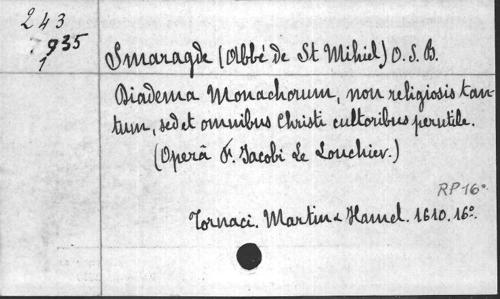 243
7935
1
Smaragde (Abbé de St Mihiel) O. S. B.
Diadema Monachorum, non religiosis tan-
tum, sed et omnibus Christi cultoribus perutile.
(Operâ F. Jacobi Le Louchier.)
RP16°.
Tornaci. Martin & Hamel. 1610. 16°.